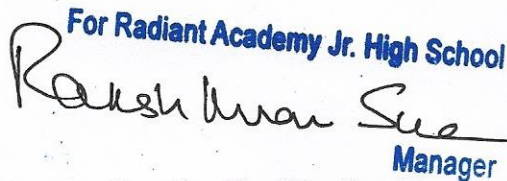 For Radiant Academy Jr. High School
Rakesh
Manager